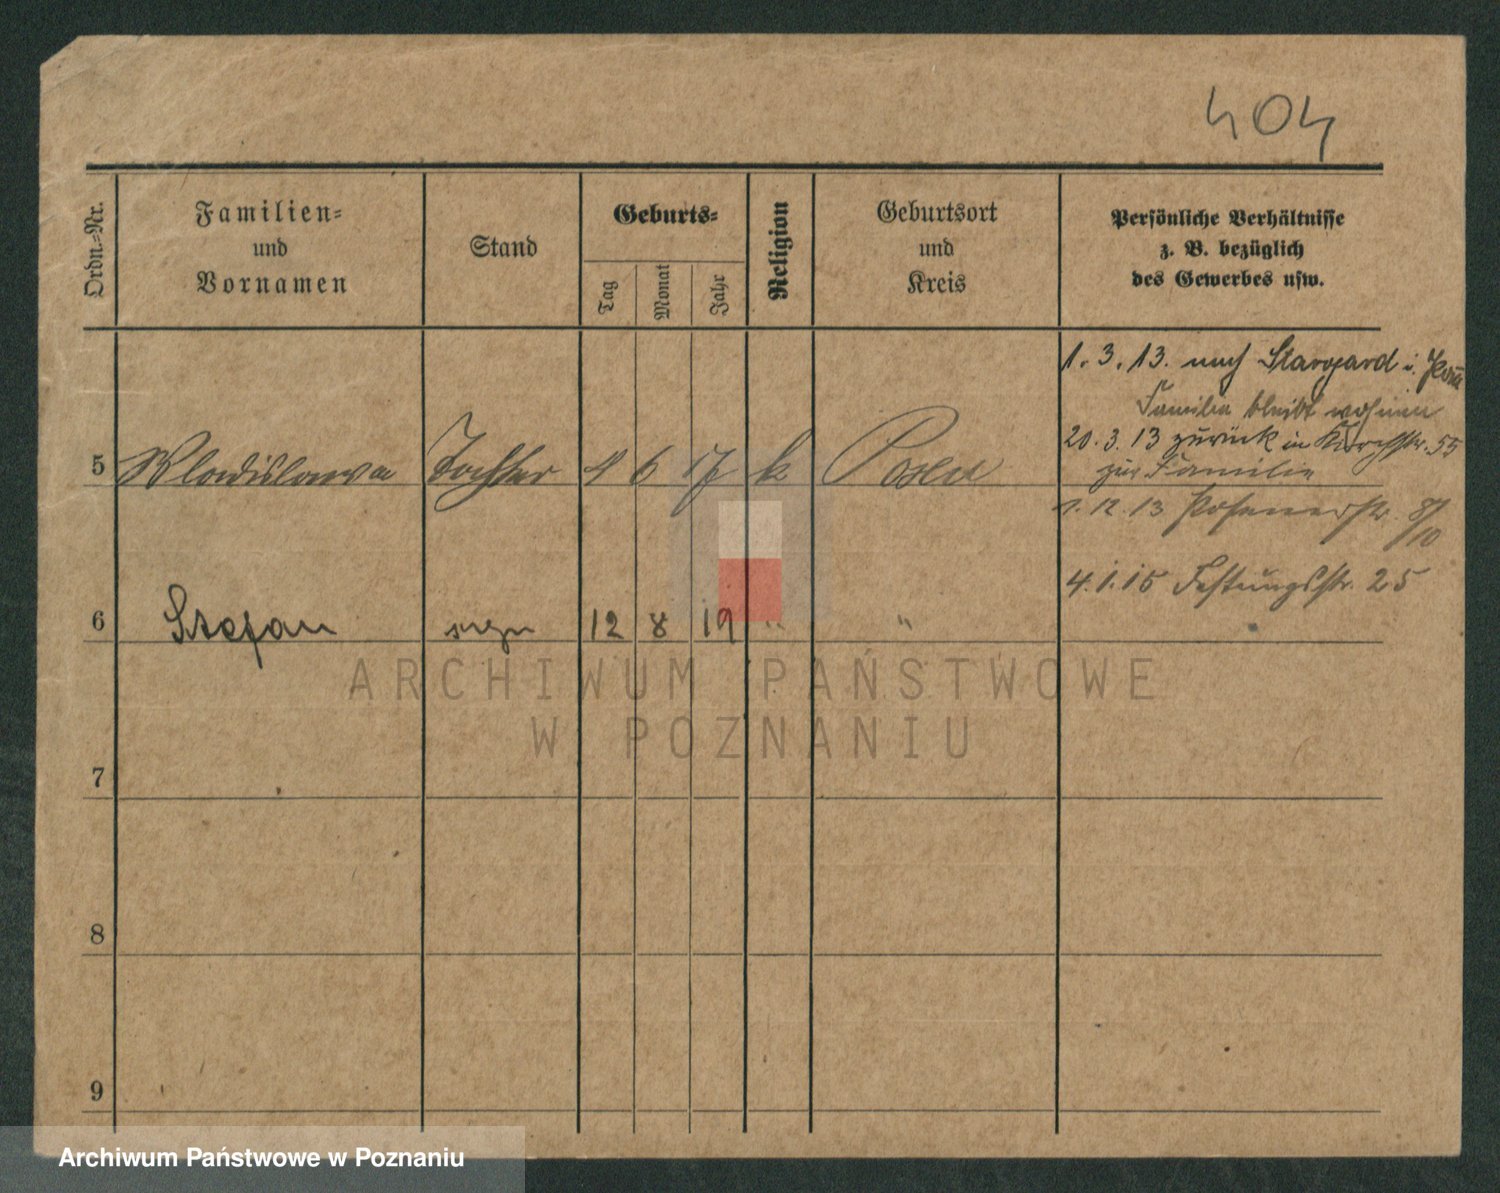 404
Ordn.-Nr.
Familien-
und
Vornamen
Stand
Geburts-
Tag
Monat
Jahr
Religion
Geburtsort
und
Kreis
Persönliche Verhältnisse
z. B. bezüglich
des Gewerbes usw.
1. 3. 13. nach Stargard i. Pom
Familie bleibt wohnen
20. 3. 13 zurück in Kirchstr. 55
zur Familie
5 Wladislawa Tochter 4 6 17 k Posen
1. 12. 13 Posenerstr. 8/10
4. 1. 15 Festungsstr. 25
6 Stefan syn 12 8 19 " "
7
8
9
ARCHIWUM PAŃSTWOWE
W POZNANIU
Archiwum Państwowe w Poznaniu